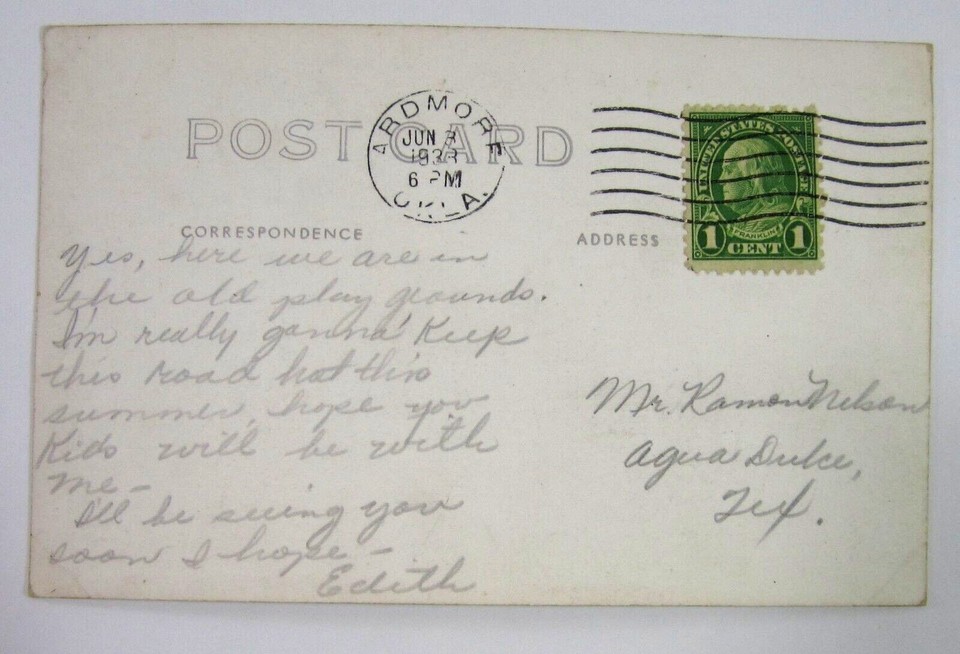 POST CARD
ARDMORE
JUN 3
1933
6 PM
OKLA.
UNITED STATES POSTAGE
FRANKLIN
1 CENT 1
CORRESPONDENCE
ADDRESS
Yes, here we are in
the old play grounds.
I'm really gonna' keep
this road hot this
summer, hope you
kids will be with
me-
I'll be seeing you
soon I hope -
Edith
Mr. Ramon Nelson
Agua Dulce,
Tex.